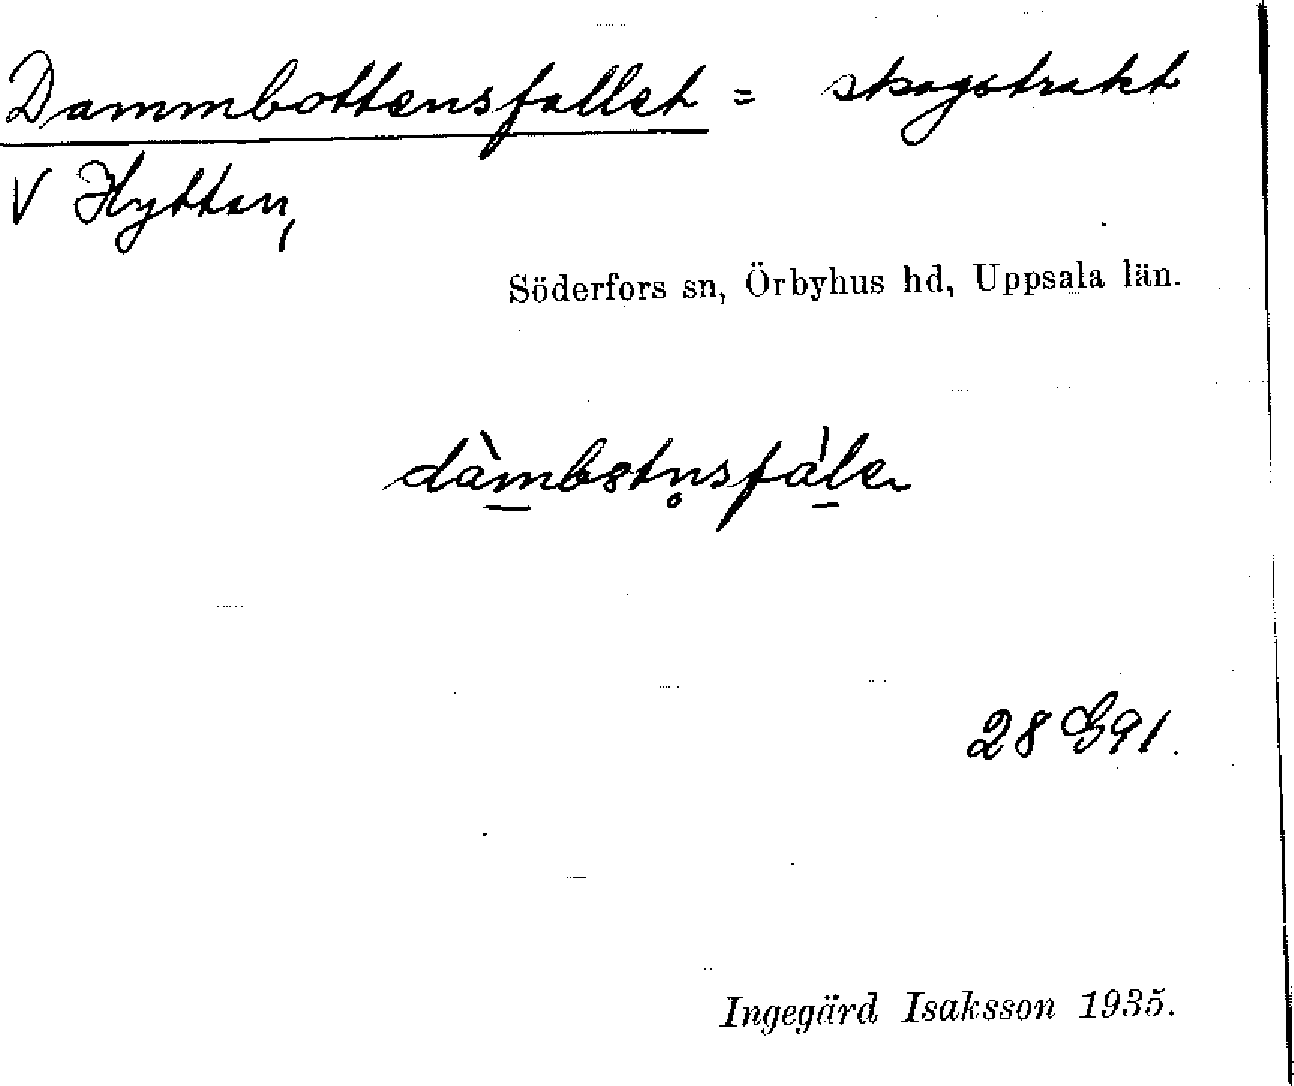 Dammbottensfallet = skogstrakt
V Hyttan,
Söderfors sn, Örbyhus hd, Uppsala län.
28 G91.
Ingegärd Isaksson 1935.